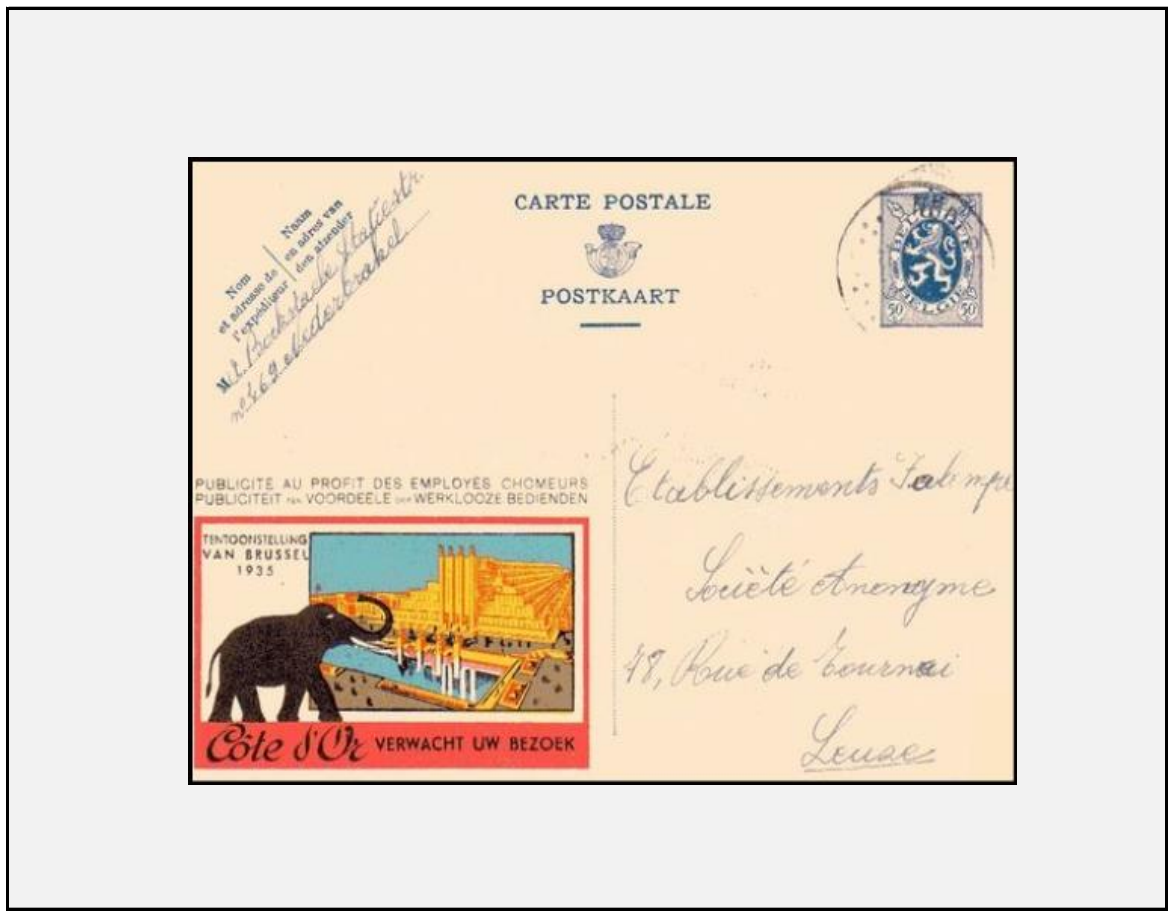 CARTE POSTALE
POSTKAART
BELGIQUE
BELGIË
50 50
Nom
et adresse de
l'expéditeur
Naam
en adres van
den afzender
M
nº 469 Nederbrakel
PUBLICITE AU PROFIT DES EMPLOYÉS CHOMEURS
PUBLICITEIT TEN VOORDEELE DER WERKLOOZE BEDIENDEN
TENTOONSTELLING
VAN BRUSSEL
1935
Côte d'Or VERWACHT UW BEZOEK
Etablissements
Société Anonyme
78, Rue de Tournai
Leuze